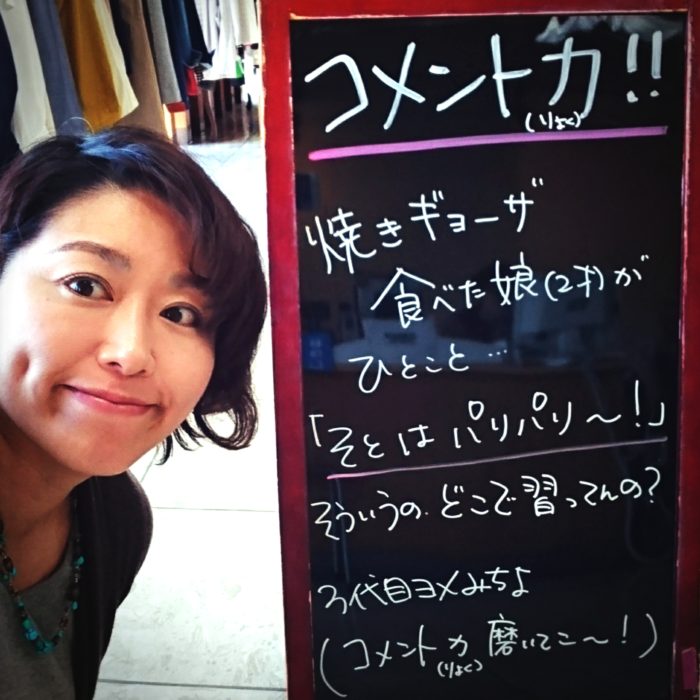 コメント力!!
(りょく)
焼きギョーザ
食べた娘(2才)が
ひとこと…
「そとはパリパリ～!」
そういうの、どこで習ってんの?
3代目ヨメみちよ
(コメント力磨いてこ～!)
(りょく)